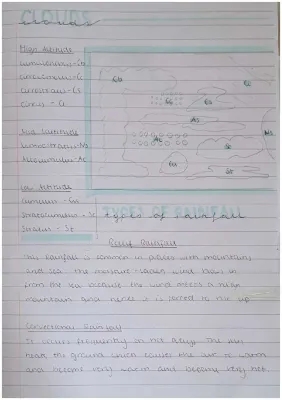 CLOUDS
clouds
High Altitude
Cirrostratus - Cs
Cirrus - Ci
Mid Altitude
Nimbostratus - Ns
Altocumulus - Ac
Low Altitude
Cumulus - Cu
Stratocumulus - Sc
Stratus - St
TYPES OF RAINFALL
types of rainfall
Relief Rainfall
This rainfall is common in places with mountains
and sea. The moisture-laden wind blows in
from the sea because the wind meets a high
mountain and hence it is forced to rise up
Convectional Rainfall
It occurs frequently on hot days. The sun
heats the ground which causes the air to warm
and become very warm and become very hot.